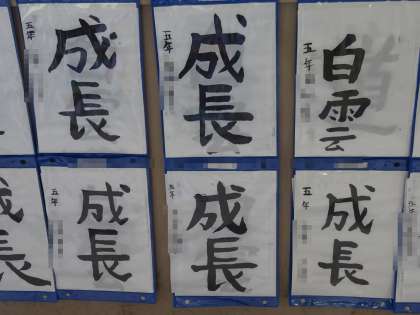 五年
成長
五年
成長
五年
白雲
成長
五年
成長
五年
成長
五年
成長